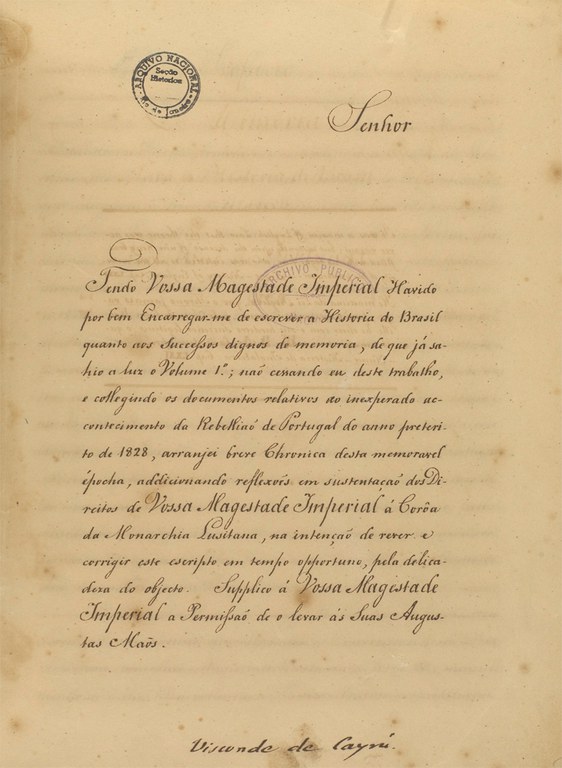 ARQUIVO NACIONAL
Secção
Historica
Rio de Janeiro
Senhor
ARCHIVO PUBLICO
Tendo Vossa Magestade Imperial Havido
por bem Encarregar-me de escrever a Historia do Brasil
quanto aos Successos dignos de memoria, de que já sa-
hio a luz o Volume 1.º; naõ cessando eu deste trabalho,
e colligindo os documentos relativos ao inesperado ac-
contecimento da Rebelliaõ de Portugal do anno preteri-
to de 1828, arranjei breve Chronica desta memoravel
épocha, addicionando reflexoẽs em sustentaçaõ dos Di-
reitos de Vossa Magestade Imperial á Corôa
da Monarchia Lusitana, na intençaõ de rever e
corrigir este escripto em tempo opportuno, pela delica-
deza do objecto. Supplico á Vossa Magestade
Imperial a Permissaõ de o levar ás Suas Augus-
tas Maõs.
Visconde de Cayrú.